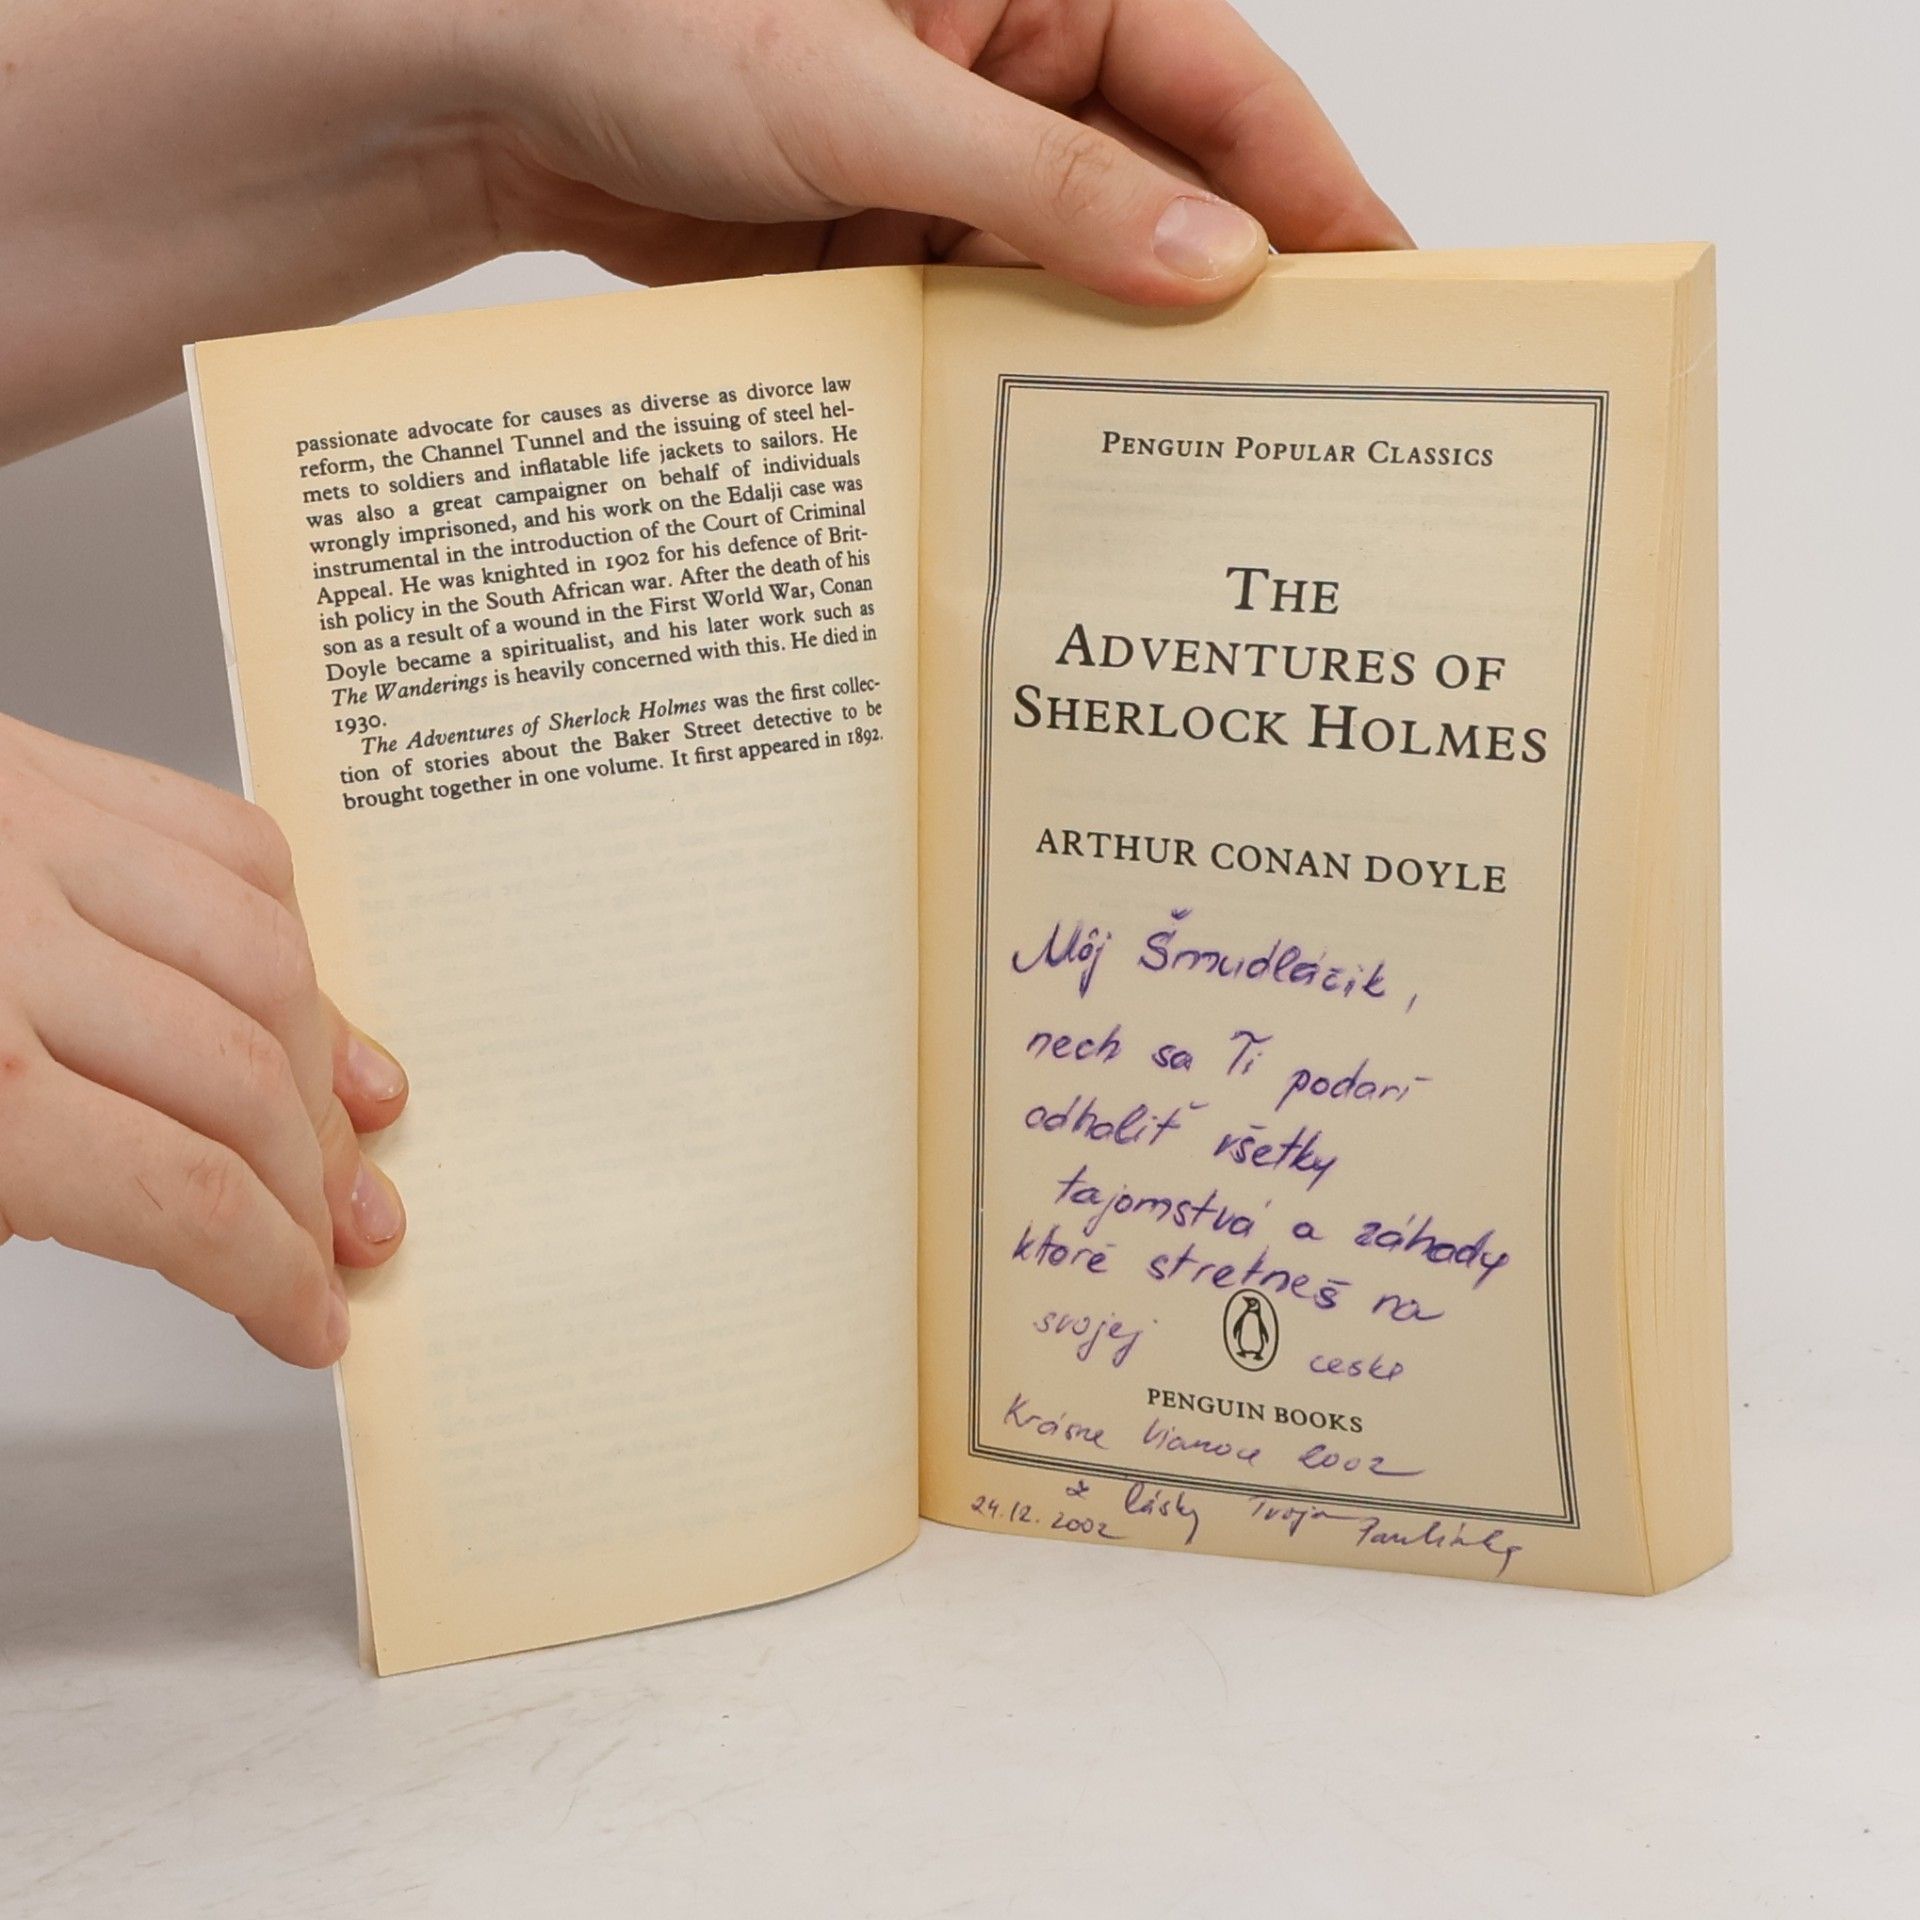 passionate advocate for causes as diverse as divorce law
reform, the Channel Tunnel and the issuing of steel hel-
mets to soldiers and inflatable life jackets to sailors. He
was also a great campaigner on behalf of individuals
wrongly imprisoned, and his work on the Edalji case was
instrumental in the introduction of the Court of Criminal
Appeal. He was knighted in 1902 for his defence of Brit-
ish policy in the South African war. After the death of his
son as a result of a wound in the First World War, Conan
Doyle became a spiritualist, and his later work such as
The Wanderings is heavily concerned with this. He died in
1930.
The Adventures of Sherlock Holmes was the first collec-
tion of stories about the Baker Street detective to be
brought together in one volume. It first appeared in 1892.
PENGUIN POPULAR CLASSICS
THE
ADVENTURES OF
SHERLOCK HOLMES
ARTHUR CONAN DOYLE
Môj Šmudláčik,
nech sa Ti podarí
odhaliť všetky
tajomstvá a záhady
ktoré stretneš na
svojej ceste
PENGUIN BOOKS
Krásne Vianoce 2002
z lásky Tvoja Paulínka
24.12.2002